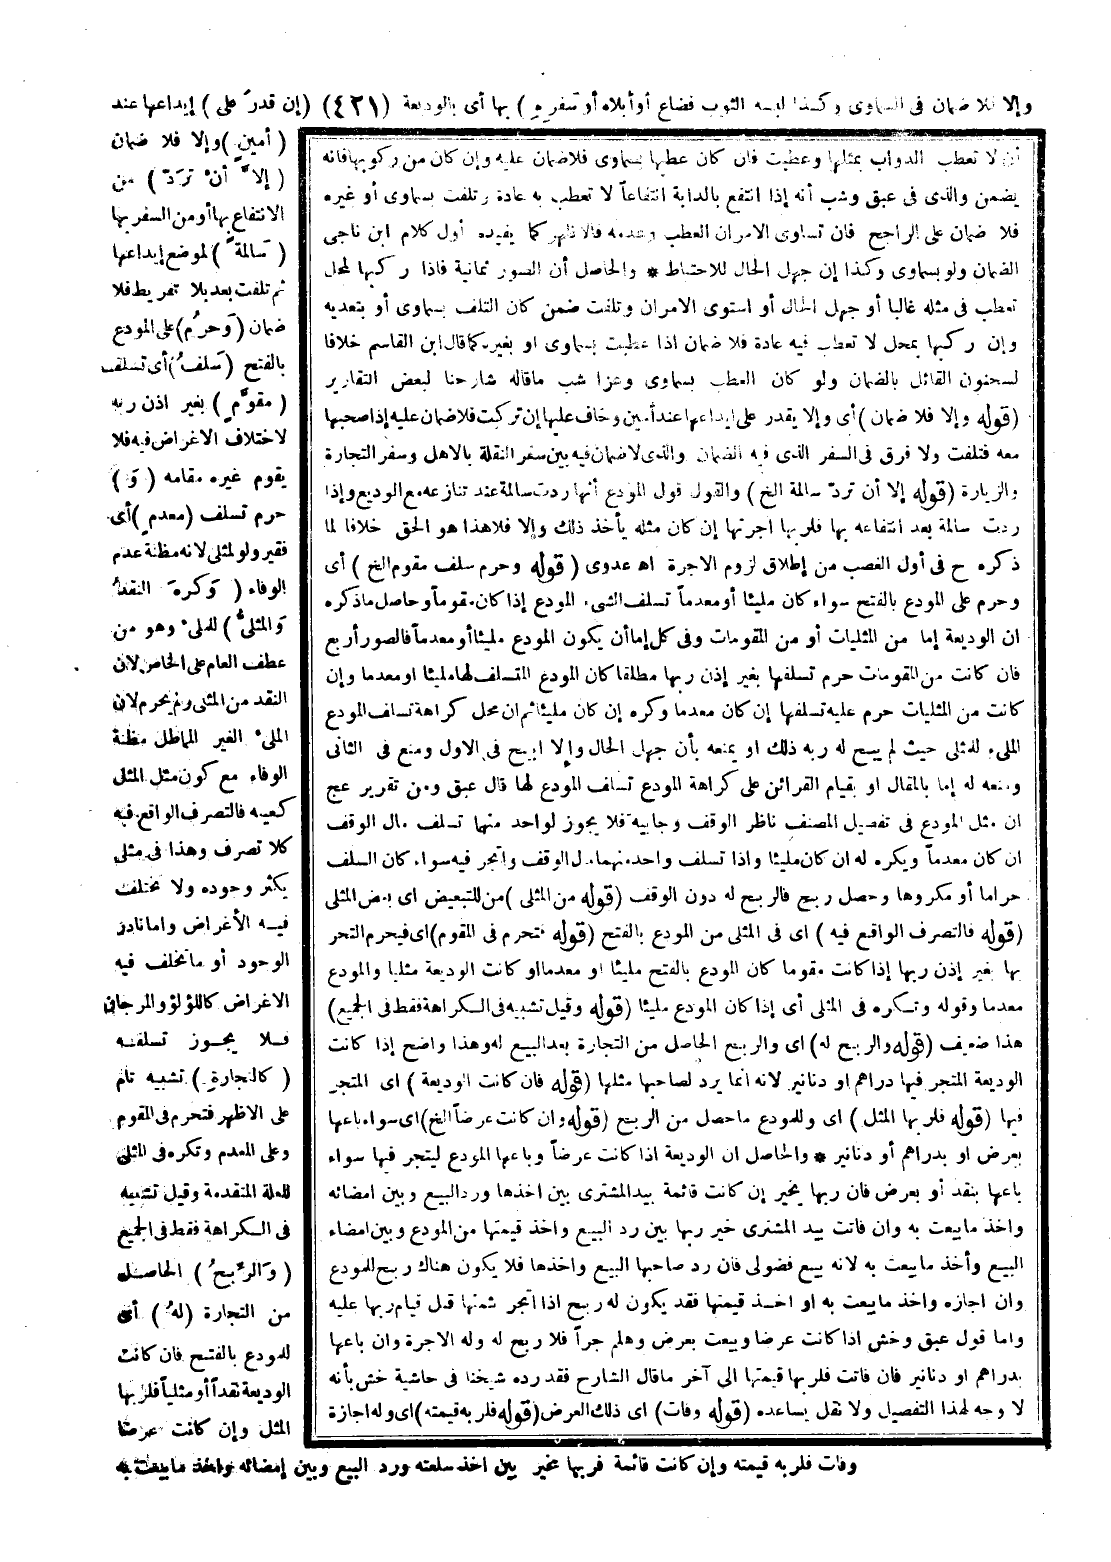 وإلا فلا ضمان فى السماوى وكذا لبسه الثوب فضاع أو أبلاه أو سفره ) بها أى بالوديعة (٤٢١) (إن قدر على) إيداعها عند
( أمين )وإلا فلا ضمان
( إلا أن تردّ ) من
الانتفاع بها أو من السفر بها
( سالمة ) لموضع إيداعها
ثم تلفت بعد بلا تفريط فلا
ضمان (وحرم) على المودع
بالفتح (سلف) أى تسلف
( مقوم ) بغير اذن ربه
لاختلاف الاغراض فيه فلا
يقوم غيره مقامه ( و )
حرم تسلف (معدم )أى
فقير ولو لمثلى لانه مظنة عدم
الوفاء ( وكره النقد
والمثلى ) للملىء وهو من
عطف العام على الخاص لان
النقد من المثلى ولم يحرم لان
الملىء الغير المماطل مظنة
الوفاء مع كون مثل المثلى
كعينه فالتصرف الواقع فيه
كلا تصرف وهذا فى مثلى
يكثر وجوده ولا تختلف
فيه الأغراض واما نادر
الوجود أو ما تختلف فيه
الاغراض كاللؤلؤ والمرجان
فلا يجوز تسلفه
( كالتجارة ) تشبيه تام
على الاظهر فتحرم فى المقوم
وعلى المعدم وتكره فى المثلى
للعلة المتقدمة وقيل تشبيه
فى الكراهة فقط فى الجميع
( والربح ) الحاصل
من التجارة (له ) أى
للمودع بالفتح فان كانت
الوديعة نقداً أو مثلياً فلربها
المثل وإن كانت عرضا
وفات فلربه قيمته وإن كانت قائمة فربها مخير بين اخذ سلعته ورد البيع وبين إمضائه واخذ ما بيعت به
أن لا تعطب الدواب بمثلها وعطبت فان كان عطبها بسماوى فلا ضمان عليه وإن كان من ركوبها فانه
يضمن والذى فى عبق وشب أنه إذا انتفع بالدابة انتفاعاً لا تعطب به عادة وتلفت بسماوى أو غيره
فلا ضمان على الراجح فان تساوى الامران العطب وعدمه فالاظهر كما يفيده أول كلام ابن ناجى
الضمان ولو بسماوى وكذا إن جهل الحال للاحتياط * والحاصل أن الصور ثمانية فاذا ركبها لمحل
تعطب فى مثله غالبا أو جهل الحال أو استوى الامران وتلفت ضمن كان التلف بسماوى أو بتعديه
وإن ركبها بمحل لا تعطب فيه عادة فلا ضمان اذا عطبت بسماوى او بغيره كما قال ابن القاسم خلافا
لسحنون القائل بالضمان ولو كان العطب بسماوى وعزا شب ماقاله شارحنا لبعض التقارير
(قوله وإلا فلا ضمان )أى وإلا يقدر على إيداعها عند أمين وخاف عليها إن تركت فلا ضمان عليه إذا صحبها
معه فتلفت ولا فرق فى السفر الذى فيه الضمان والذى لا ضمان فيه بين سفر النقلة بالاهل وسفر التجارة
والزيارة (قوله إلا أن تردّ سالمة الخ ) والقول قول المودع أنها ردت سالمة عند تنازعه مع الوديع وإذا
ردت سالمة بعد انتفاعه بها فلربها اجرتها إن كان مثله يأخذ ذلك وإلا فلا هذا هو الحق خلافا لما
ذكره ح فى أول الغصب من إطلاق لزوم الاجرة اهـ عدوى ( قوله وحرم سلف مقوم الخ ) أى
وحرم على المودع بالفتح سواء كان مليئا أو معدماً تسلف الشىء المودع إذا كان مقوماً وحاصل ما ذكره
ان الوديعة إما من المثليات أو من المقومات وفى كل إما أن يكون المودع مليئا أو معدماً فالصور أربع
فان كانت من المقومات حرم تسلفها بغير إذن ربها مطلقا كان المودع المتسلف لها مليئا او معدما وإن
كانت من المثليات حرم عليه تسلفها إن كان معدما وكره إن كان مليئا ثم ان محل كراهة تسلف المودع
الملىء للمثلى حيث لم يبح له ربه ذلك او يمنعه بأن جهل الحال وإلا ابيح فى الاول ومنع فى الثانى
ومنعه له إما بالمقال او بقيام القرائن على كراهة المودع تسلف المودع لها قال عبق ومن تقرير عج
ان مثل المودع فى تفصيل المصنف ناظر الوقف وجابيه فلا يجوز لواحد منهما تسلف مال الوقف
ان كان معدماً ويكره له ان كان مليئا واذا تسلف واحد منهما مال الوقف واتجر فيه سواء كان السلف
حراما أو مكروها وحصل ربح فالربح له دون الوقف (قوله من المثلى )من للتبعيض اى بعض المثلى
(قوله فالتصرف الواقع فيه ) اى فى المثلى من المودع بالفتح (قوله فتحرم فى المقوم)اى فيحرم التجر
بها بغير إذن ربها إذا كانت مقوما كان المودع بالفتح مليئا او معدما او كانت الوديعة مثليا والمودع
معدما وقوله وتكره فى المثلى أى إذا كان المودع مليئا (قوله وقيل تشبيه فى الكراهة فقط فى الجميع)
هذا ضعيف (قوله والربح له) اى والربح الحاصل من التجارة بعد البيع له وهذا واضح إذا كانت
الوديعة المتجر فيها دراهم او دنانير لانه انما يرد لصاحبها مثلها (قوله فان كانت الوديعة ) اى المتجر
فيها (قوله فلربها المثل ) اى وللمودع ما حصل من الربح (قوله وان كانت عرضاً الخ)اى سواء باعها
بعرض او بدراهم أو دنانير * والحاصل ان الوديعة اذا كانت عرضاً وباعها المودع ليتجر فيها سواء
باعها بنقد أو بعرض فان ربها يخير إن كانت قائمة بيد المشترى بين اخذها ورد البيع وبين امضائه
واخذ ما بيعت به وان فاتت بيد المشترى خير ربها بين رد البيع واخذ قيمتها من المودع وبين امضاء
البيع وأخذ ما بيعت به لانه بيع فضولى فان رد صاحبها البيع واخذها فلا يكون هناك ربح للمودع
وان اجازه واخذ ما بيعت به او اخذ قيمتها فقد يكون له ربح اذا اتجر بثمنها قبل قيام ربها عليه
واما قول عبق وخش اذا كانت عرضا وبيعت بعرض وهلم جراً فلا ربح له وله الاجرة وان باعها
بدراهم او دنانير فان فاتت فلربها قيمتها الى آخر ماقال الشارح فقد رده شيخنا فى حاشية خش بأنه
لا وجه لهذا التفصيل ولا نقل يساعده (قوله وفات) اى ذلك العرض (قوله فلربه قيمته)اى وله اجازة